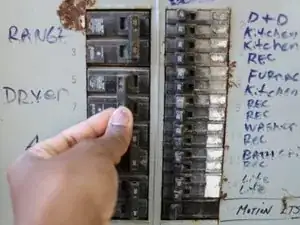 RANGE
3
5
DRYER
7
D+D
Kitchen
Kitchen
REC
FURNAC
Kitchen
REC
REC
WASHER
REC
REC
Lite
Lite
MOTION LTS